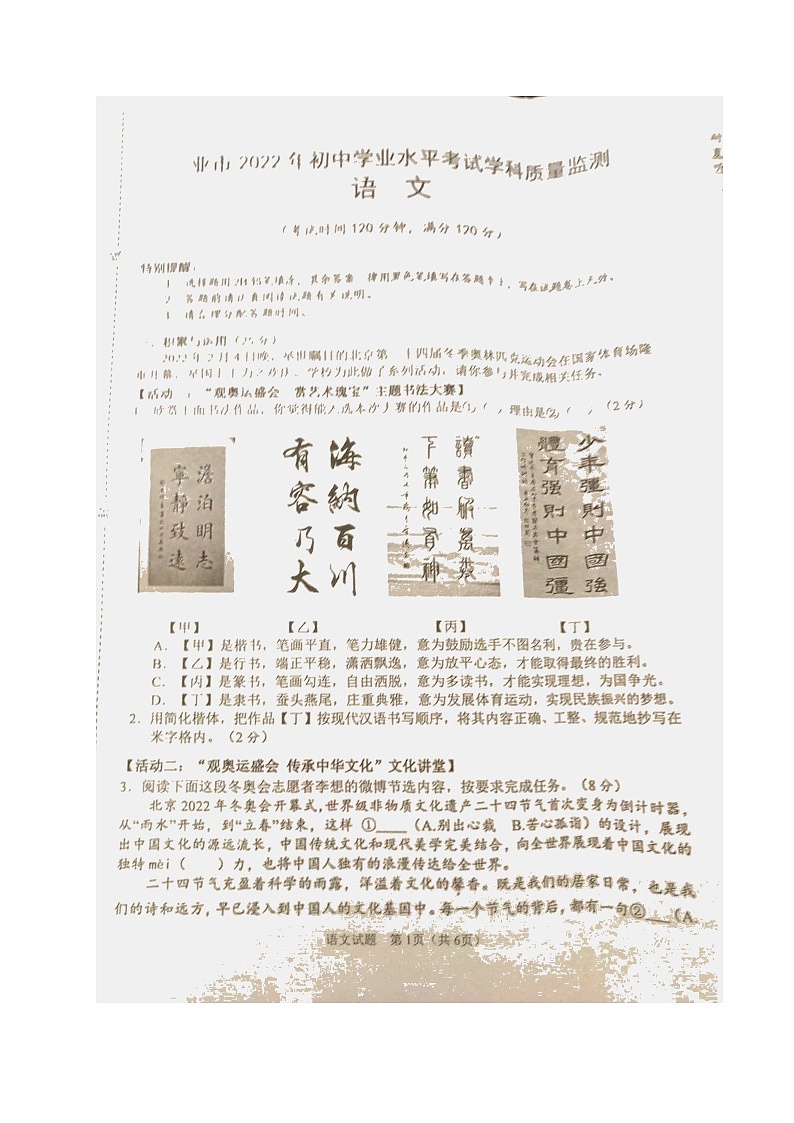 业市 2022 年初中学业水平考试学科质量监测
语 文
(考试时间 120 分钟，满分 120 分)
特别提醒：
1 选择题用 2B 铅笔填涂，其余答案 律用黑色笔填写在答题卡上，写在试题卷上无效。
2 答题前请认真阅读试题有关说明。
3 请合理分配答题时间。
积累与运用（25 分）
2022 年 2 月 4 日晚，举世瞩目的北京第 十四届冬季奥林匹克运动会在国家体育场隆
开幕， 学校为此做了系列活动，请你参与并完成相关任务。
【活动 ：“观奥运盛会 赏艺术瑰宝”主题书法大赛】
1 欣赏下面书法作品，你觉得能入选本次大赛的作品是①（ ）理由是②（ ）（2 分）
澹泊明志
寧静致遠
海納百川
有容乃大
讀書破萬卷
下筆如有神
少年強則中國強
體育强則中國彊
【甲】 【乙】 【丙】 【丁】
A．【甲】是楷书，笔画平直，笔力雄健，意为鼓励选手不图名利，贵在参与。
B．【乙】是行书，端正平稳，潇洒飘逸，意为放平心态，才能取得最终的胜利。
C．【丙】是篆书，笔画勾连，自由洒脱，意为多读书，才能实现理想，为国争光。
D．【丁】是隶书，蚕头燕尾，庄重典雅，意为发展体育运动，实现民族振兴的梦想。
2．用简化楷体，把作品【丁】按现代汉语书写顺序，将其内容正确、工整、规范地抄写在
米字格内。（2 分）
【活动二：“观奥运盛会 传承中华文化”文化讲堂】
3．阅读下面这段冬奥会志愿者李想的微博节选内容，按要求完成任务。（8 分）
北京 2022 年冬奥会开幕式，世界级非物质文化遗产二十四节气首次变身为倒计时器，
从“雨水”开始，到“立春”结束，这样 ①____（A.别出心裁 B.苦心孤诣）的设计，展现
出中国文化的源远流长，中国传统文化和现代美学完美结合，向全世界展现着中国文化的
独特 mèi（ ）力，也将中国人独有的浪漫传达给全世界。
二十四节气充盈着科学的雨露，洋溢着文化的馨香。既是我们的居家日常，也是我
们的诗和远方，早已浸入到中国人的文化基因中。每一个节气的背后，都有一句②____（A
语文试题 第 1页（共 6页）